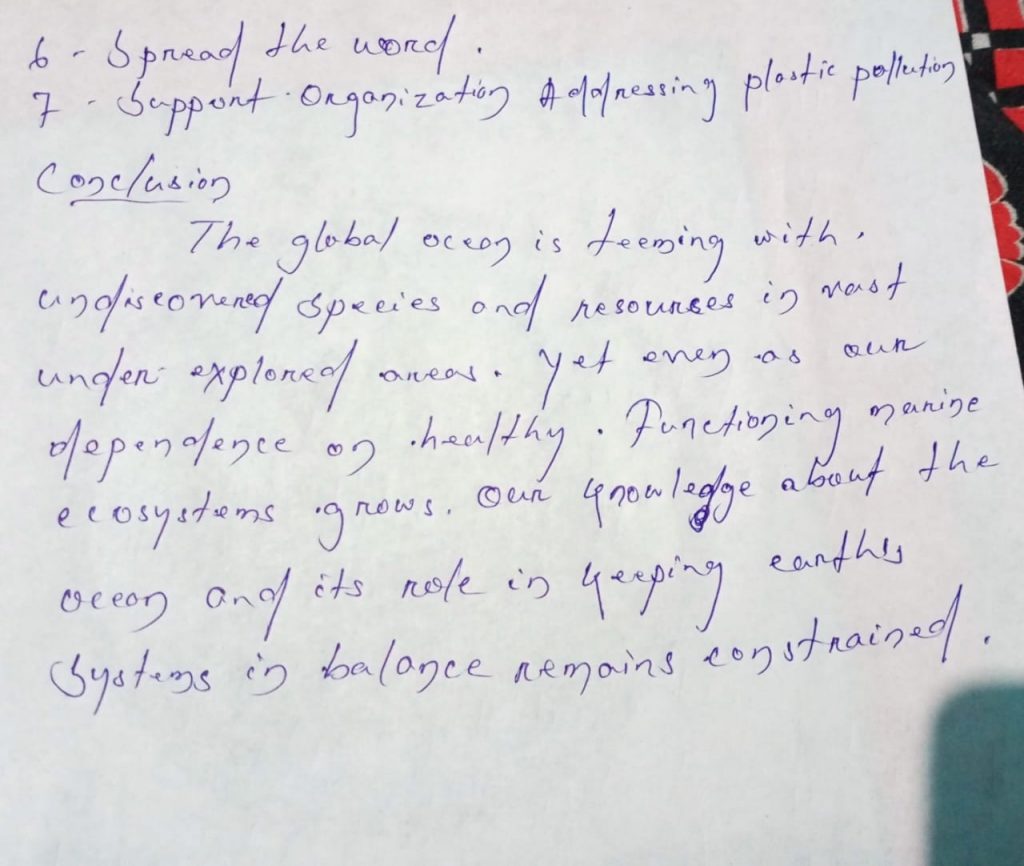 6 - Spread the word.
7 - Support Organization Addressing plastic pollution
Conclusion
The global ocean is teeming with.
undiscovered species and resourses in vast
under explored areas. Yet even as our
dependence on healthy. Functioning marine
ecosystems grows. Our knowledge about the
ocean and its role in keeping earth's
Systems in balance remains constrained.